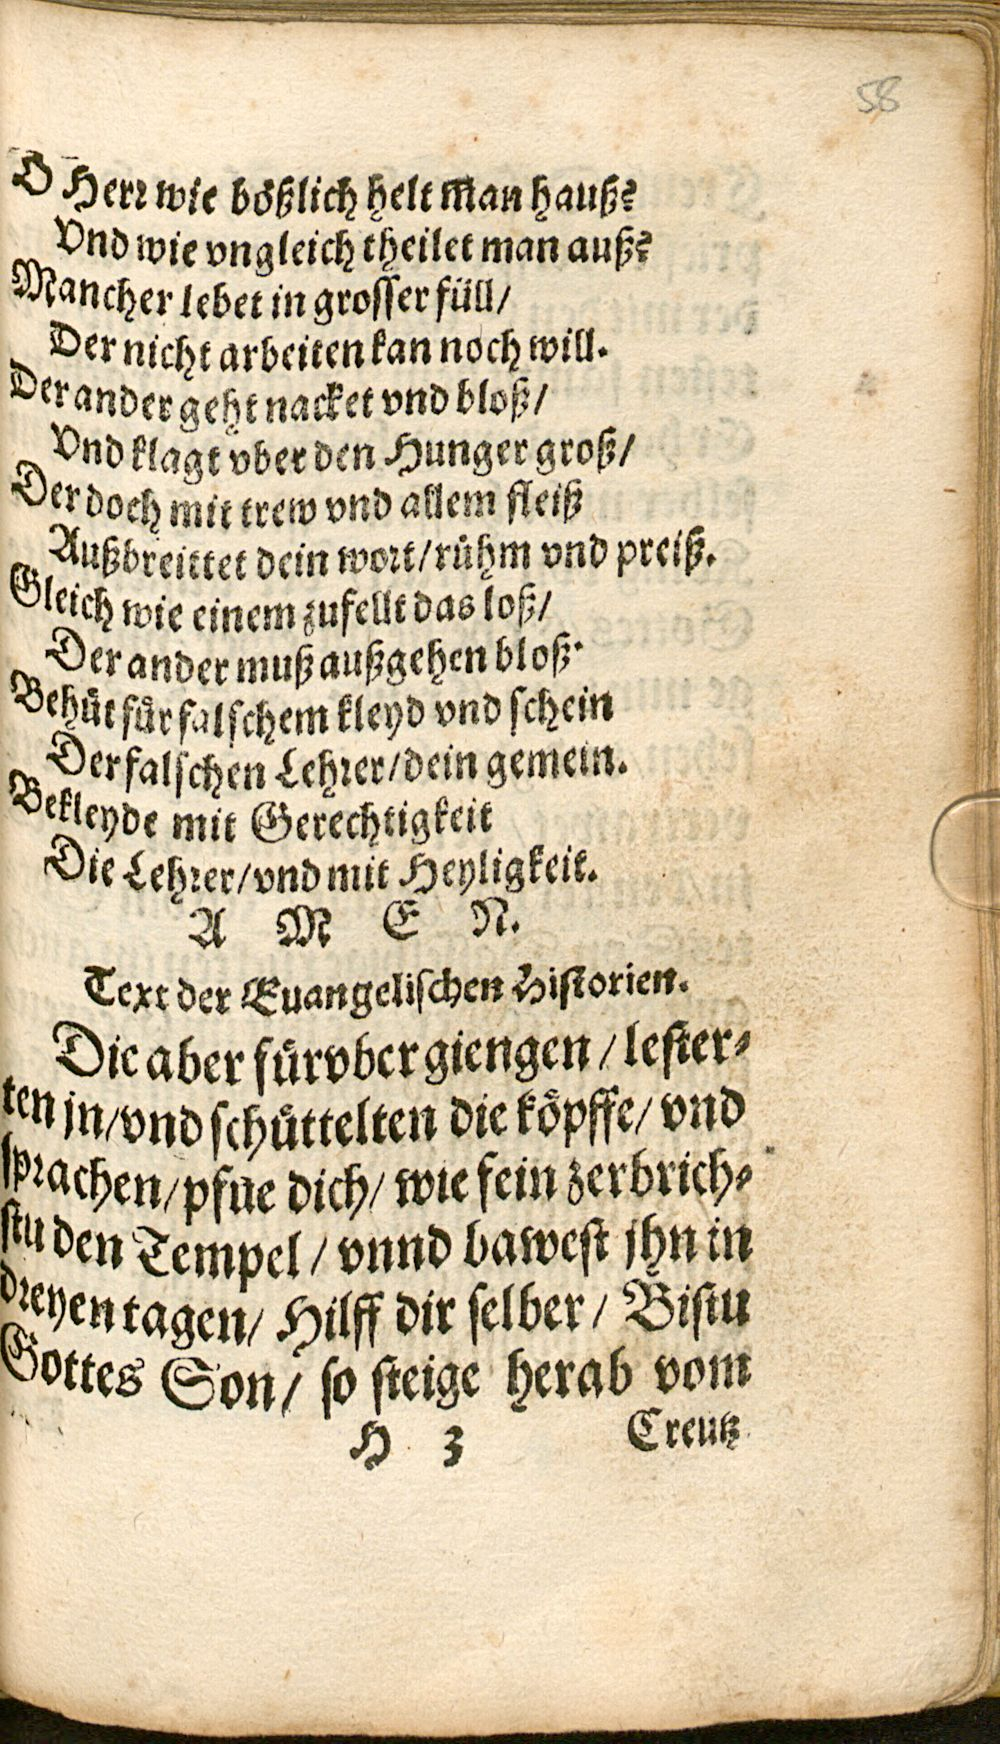 58
O Herr wie bößlich helt man hauß?
Vnd wie vngleich theilet man auß?
Mancher lebet in grosser füll/
Der nicht arbeiten kan noch will.
Der ander geht nacket vnd bloß/
Vnd klagt vber den Hunger groß/
Der doch mit trew vnd allem fleiß
Außbreittet dein wort/ rühm vnd preiß.
Gleich wie einem zufellt das loß/
Der ander muß außgehen bloß.
Behüt für falschem kleyd vnd schein
Der falschen Lehrer/ dein gemein.
Bekleyde mit Gerechtigkeit
Die Lehrer/ vnd mit Heyligkeit.
A M E N.
Text der Euangelischen Historien.
Die aber fürvber giengen / lester-
ten jn/ vnd schüttelten die köpffe/ vnd
sprachen/ pfue dich/ wie fein zerbrich-
stu den Tempel / vnnd bawest jhn in
dreyen tagen/ Hilff dir selber / Bistu
Gottes Son/ so steige herab vom
H 3 Creutz